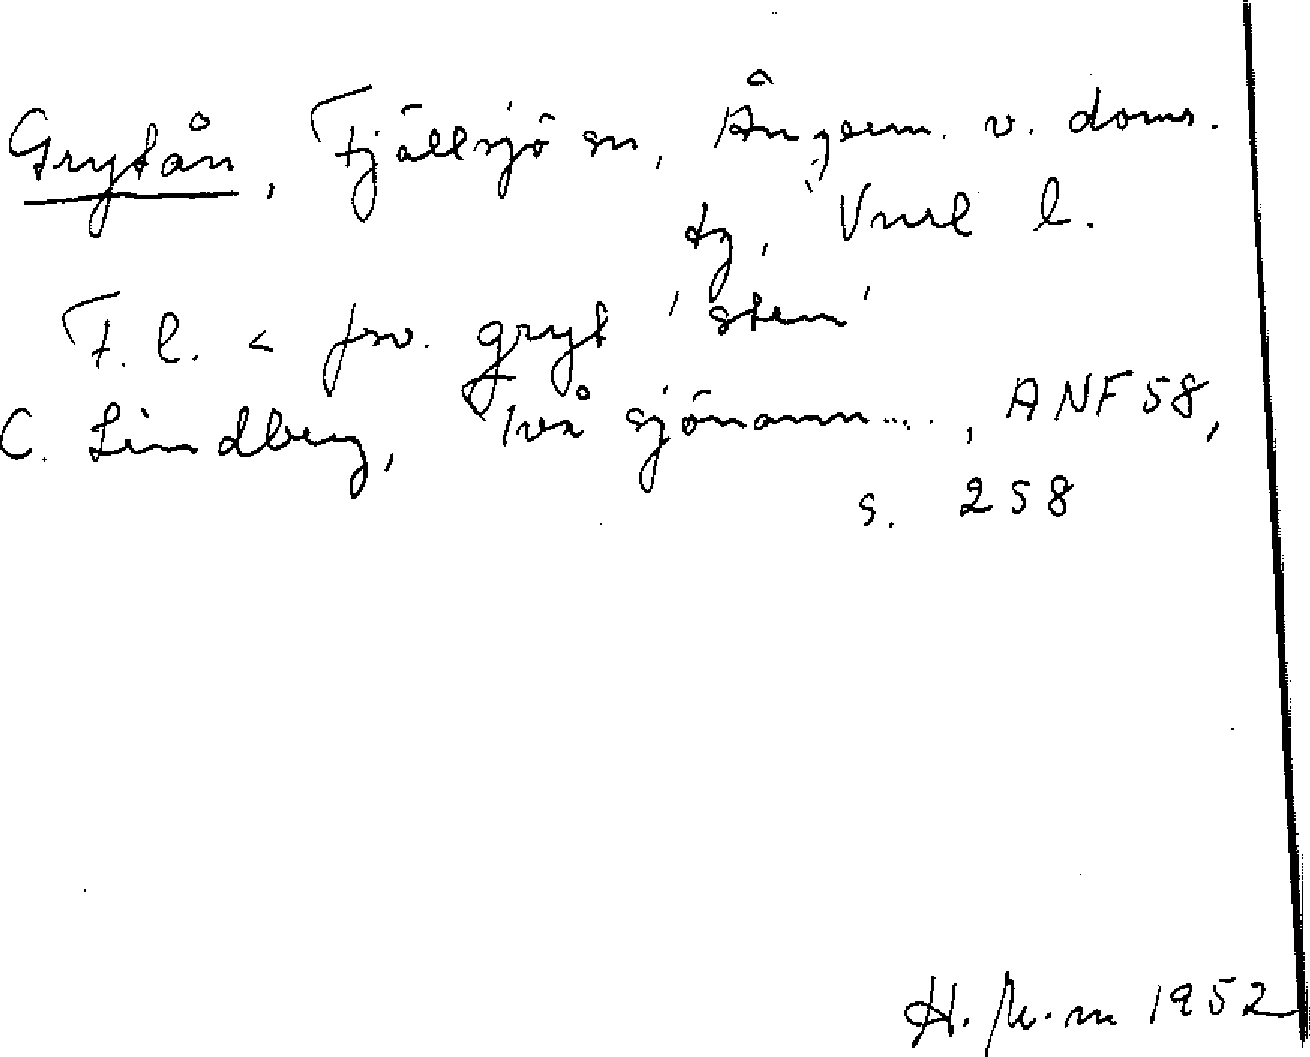 Grytån, Fjällsjö sn, Ångerm. v. doms.
tg, Vnrl l.
F. l. < fsv. gryt 'sten'
C. Lindberg, Två sjönamn..., ANF 58,
s. 258
H. 1952